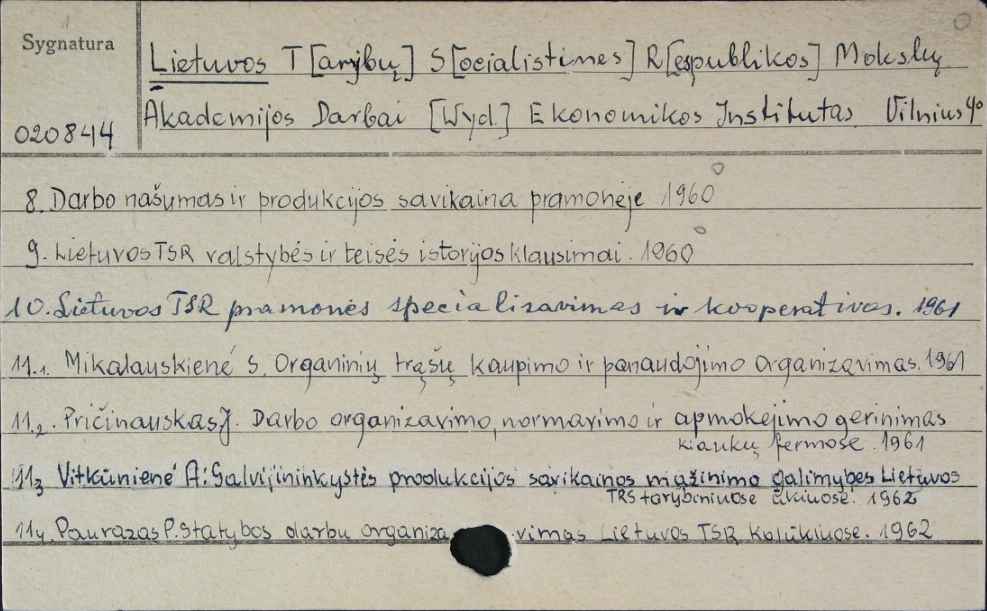 Sygnatura
020844
Lietuvos T[arybų] S[ocialistines] R[espublikos] Mokslų
Akademijos Darbai [Wyd.] Ekonomikos Institutas Vilnius 4º
8. Darbo našumas ir produkcijos savikaina pramonėje 1960
9. Lietuvos TSR valstybės ir teisės istorijos klausimai. 1960
10. Lietuvos TSR pramonės specializavimas ir kooperativas. 1961
11.1. Mikalauskienė S. Organinių trąšų kaupimo ir panaudojimo organizavimas. 1961
11.2. Pričinauskas J. Darbo organizavimo, normavimo ir apmokėjimo gerinimas
kiaukų fermose. 1961
11.3 Vitkūnienė A: Galvijininkystės produkcijos savikainos mąžinimo galimybes Lietuvos
TRS tarybiniuose ūkiuose. 1962
11.4. Paurazas P. Statybos darbu organizavimas Lietuvos TSR Kolūkiuose. 1962